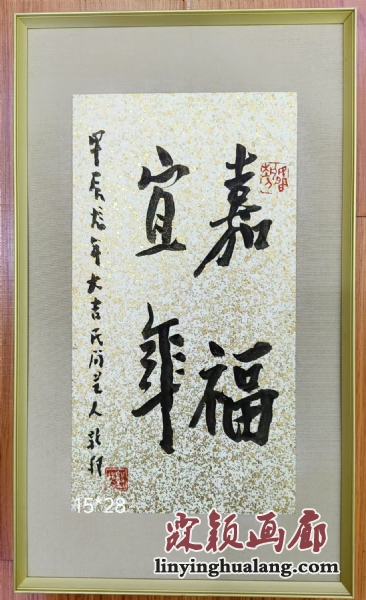 嘉福
宜年
甲辰龙年大吉民间艺人
15*28
霖颖画廊
linyinghualang.com